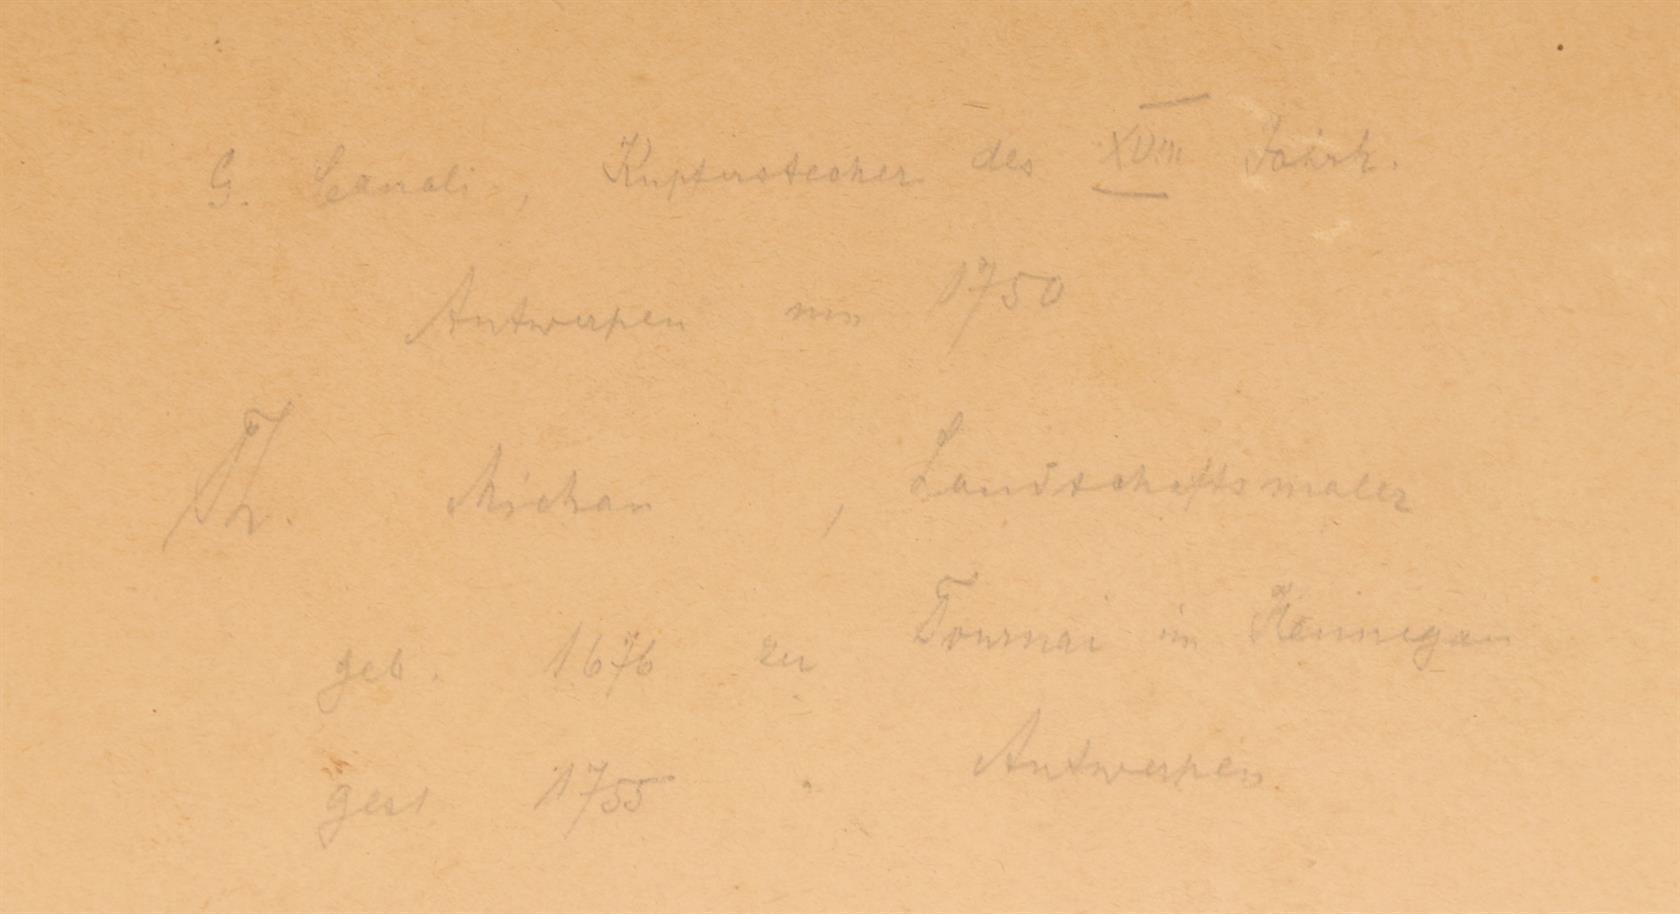 G. Canali, Kupferstecher des XVIII Jahrh.
Antwerpen um 1750
Th. Michau, Landschaftsmaler
geb. 1676 zu Tournai im Hennegau
gest 1755 " Antwerpen